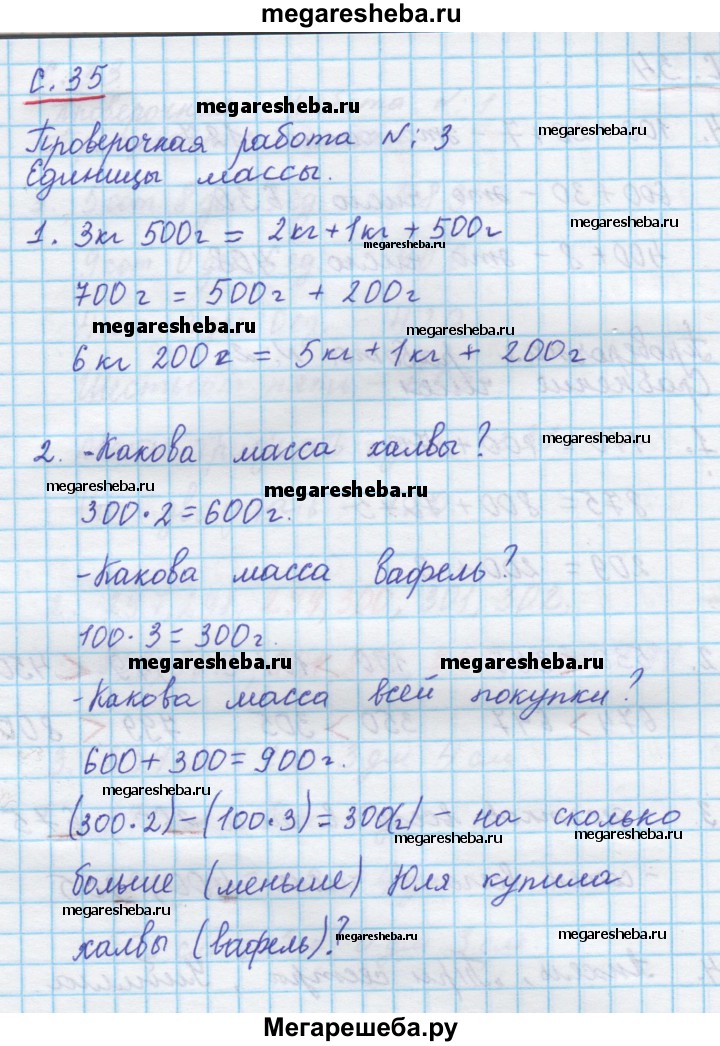 megaresheba.ru
с. 35
megaresheba.ru
Проверочная работа №: 3
megaresheba.ru
Единицы массы.
1. 3кг 500г = 2кг + 1кг + 500г
megaresheba.ru
megaresheba.ru
700г = 500г + 200г
megaresheba.ru
megaresheba.ru
6 кг 200г = 5кг + 1кг + 200г
2. -Какова масса халвы?
megaresheba.ru
megaresheba.ru
megaresheba.ru
300·2=600г.
-Какова масса вафель?
100·3=300г.
megaresheba.ru
megaresheba.ru
-Какова масса всей покупки?
600+300=900г.
megaresheba.ru
(300·2)-(100·3)=300(г) - на сколько
megaresheba.ru
megaresheba.ru
больше (меньше) Юля купила
megaresheba.ru
халвы (вафель)?
megaresheba.ru
megaresheba.ru
Мегарешеба.ру